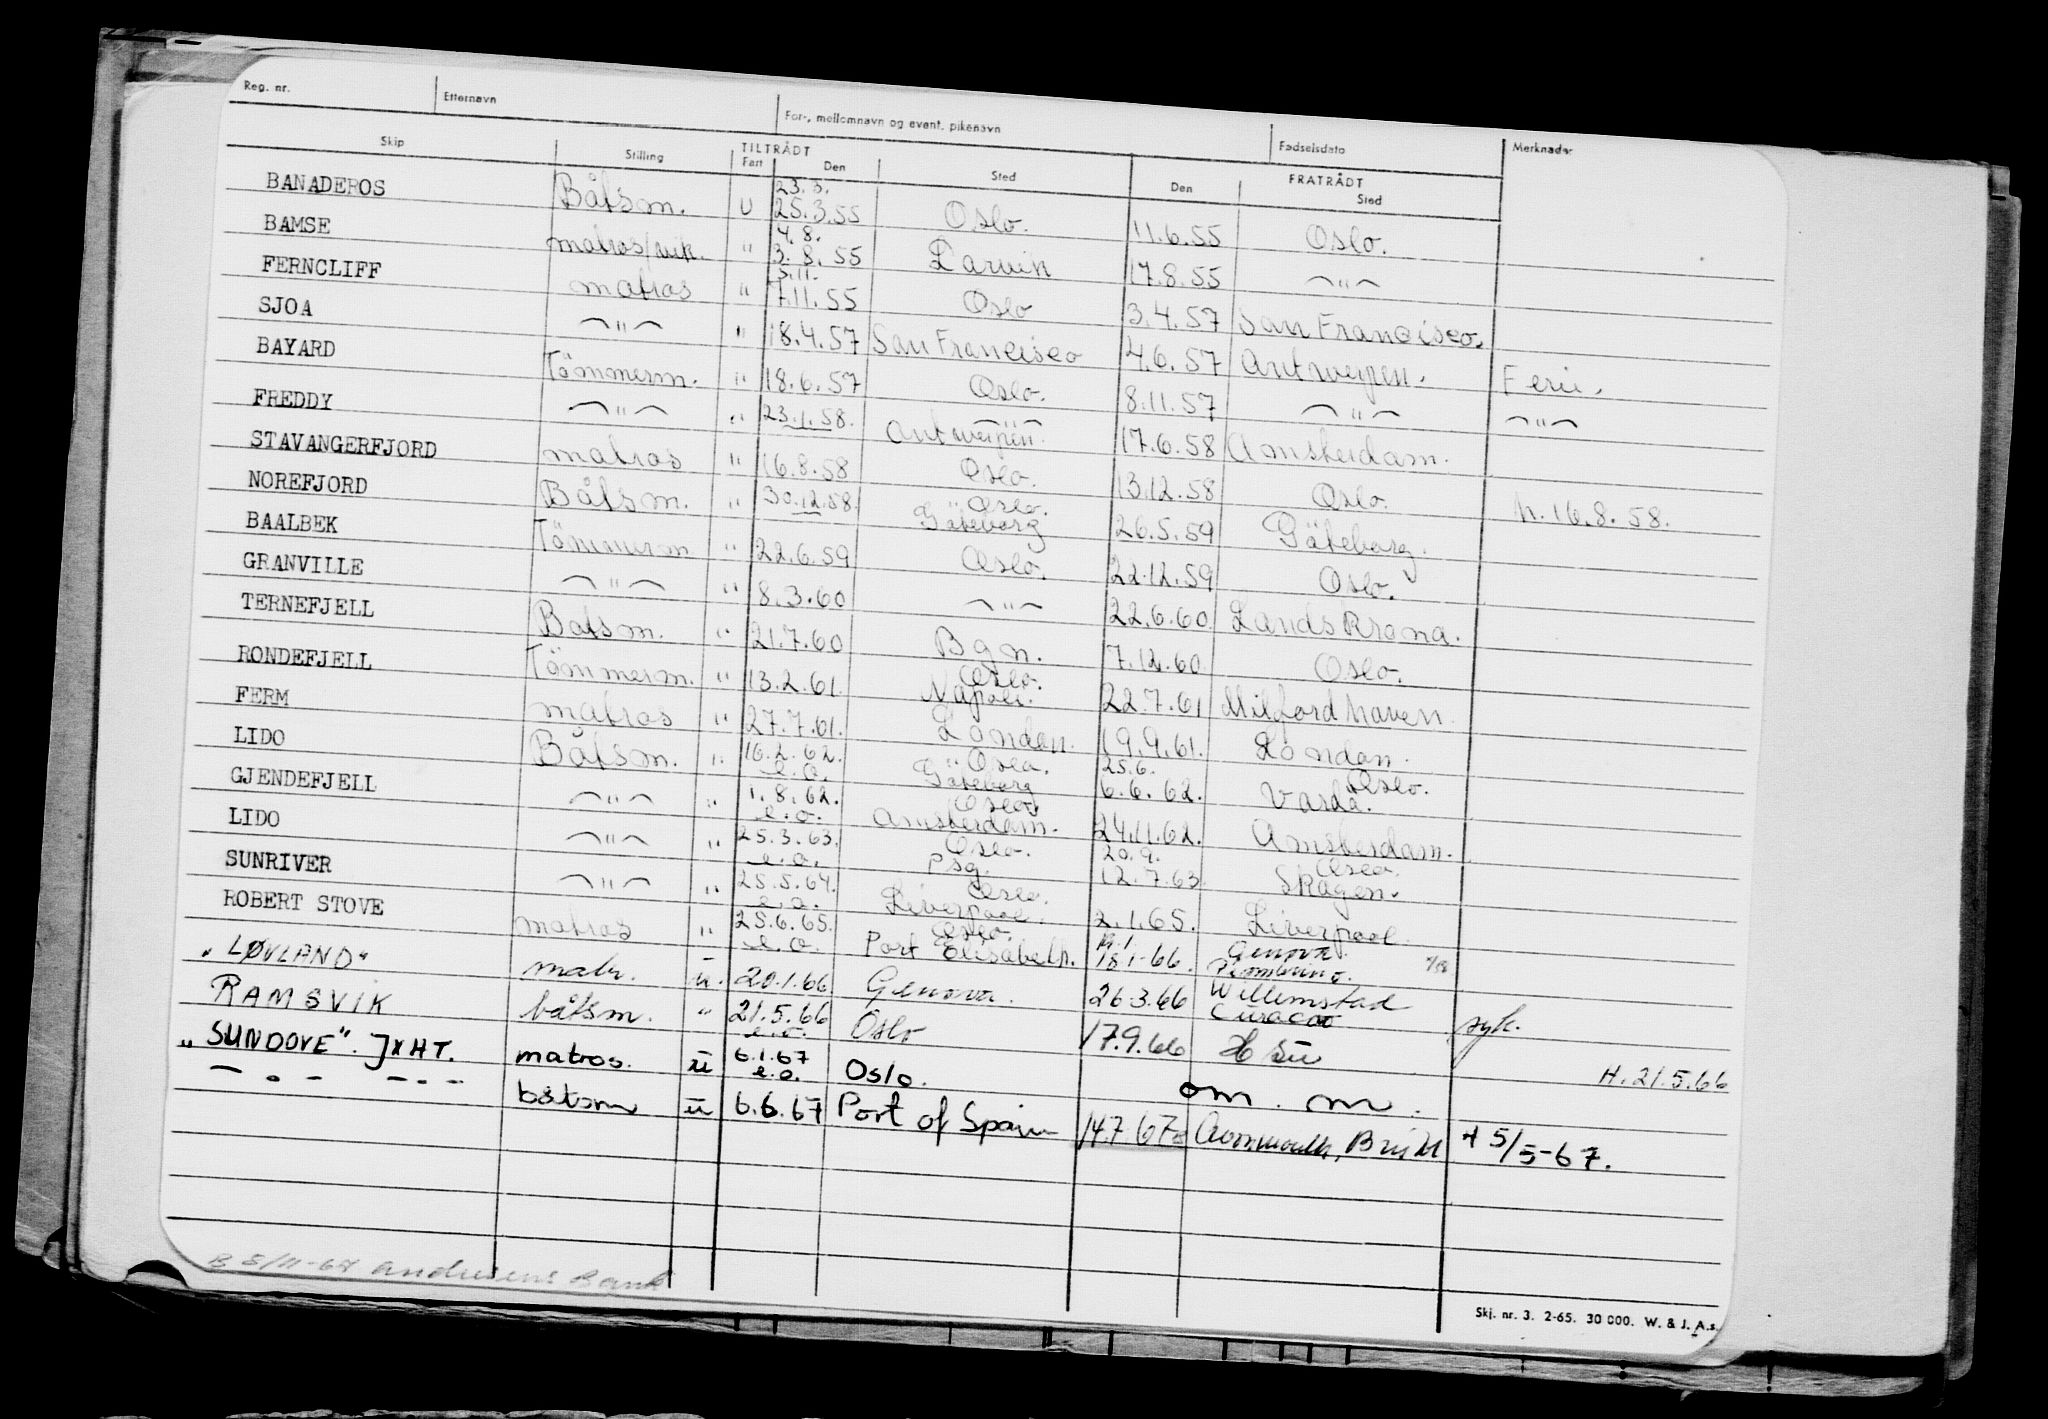 Reg. nr. Etternavn For-, mellomnavn og event. pikenavn Fødselsdato Merknader
Skip Stilling TILTRÅDT Fart Den Sted FRATRÅDT Den Sted
BANADEROS Båtsm. U 23.3. 25.3.55 Oslo. 11.6.55 Oslo.
BAMSE matros/vik. " 4.8. 3.8.55 Larvik 17.8.55 — " —
FERNCLIFF matros " 5.11. 7.11.55 Oslo 3.4.57 San Francisco.
SJOA — " — " 18.4.57 San Francisco 4.6.57 Antwerpen. Ferie.
BAYARD Tömmerm. " 18.6.57 Oslo. 8.11.57 — " — — " —
FREDDY — " — " 23.1.58. — " — Antwerpen. 17.6.58 Amsterdam.
STAVANGERFJORD matros " 16.8.58 Oslo. 13.12.58 Oslo. h. 16.8.58.
NOREFJORD Båtsm. " 30.12.58. Oslo. Göteborg 26.5.59 Göteborg.
BAALBEK Tömmerm " 22.6.59 Oslo. 22.12.59 Oslo.
GRANVILLE — " — " 8.3.60 — " — 22.6.60 Landskrona.
TERNEFJELL Båtsm. " 21.7.60 Bgn. 7.12.60 Oslo.
RONDEFJELL Tömmerm. " 13.2.61. Oslo. Napoli. 22.7.61 Milfordhaven.
FERM matros " 27.7.61. London. 19.9.61. London.
LIDO Båtsm. " 16.2.62. e.o. Oslo. Göteborg 25.6. 6.6.62. Oslo. Vardö.
GJENDEFJELL — " — " 1.8.62. e.o. Oslo Amsterdam. 24.11.62. Amsterdam.
LIDO — " — " 25.3.63. e.o. Oslo. Psg. 20.9. 12.7.63. Oslo. Skagen.
SUNRIVER — " — " 25.5.64. e.o. Oslo. Liverpool. 2.1.65. Liverpool.
ROBERT STOVE matros " 25.6.65. e.o. Oslo. Port Elisabeth. 19.1. 18.1-66. Genova. Piombino.
"LØVLAND" matr. u. 20.1.66 Genova. 26.3.66 Willemstad Curacao syk.
RAMSVIK båtsm. " 21.5.66 e.o. Oslo 17.9.66 H. 21.5.66
"SUNDOVE". JXHT. matros. u 6.1.67 e.o. Oslo. om. m.
— " — — " — båtsm u 6.6.67 Port of Spain 14.7.67 Avonmouth, H 5/5-67.
B 8/11-67 Andresens Bank
Skj. nr. 3. 2-65. 30 000. W. & J. A.s.